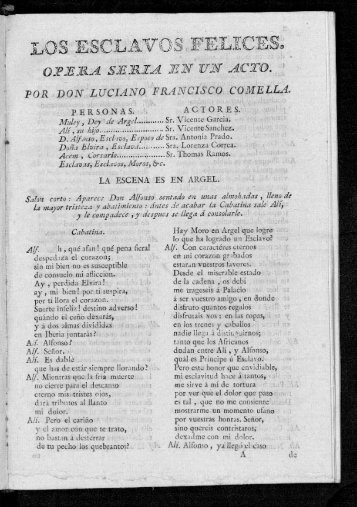 LOS ESCLAVOS FELICES.
OPERA SERIA EN UN ACTO.
POR DON LUCIANO FRANCISCO COMELLA.
PERSONAS. ACTORES.
Muley, Dey de Argel............ Sr. Vicente Garcia.
Alí, su hijo..................... Sr. Vicente Sanchez.
D. Alfonso, Esclavo, Esposo de Sra. Antonia Prado.
Doña Elvira, Esclava........ Sra. Lorenza Correa.
Acem, Corsario.............. Sr. Thomas Ramos.
Esclavos, Esclavas, Moros, &c.
LA ESCENA ES EN ARGEL.
Salon corto: Aparece Don Alfonso sentado en unas almohadas, lleno de
la mayor tristeza y abatimiento: ántes de acabar la Cabatina sale Alí,
y le compadece, y despues se llega á consolarle.
Cabatina.
Alf. h, qué afan! qué pena fieral
despedaza el corazon;
sin mi bien no es susceptible
de consuelo mi afliccion.
Ay, perdida Elvira!
ay, mi bien! por tí suspira,
por tí llora el corazon.
Suerte infeliz! destino adverso!
quándo el ceño desarás,
y á dos almas divididas
en Iberia juntarás?
Alí. Alfonso?
Alf. Señor.
Alí. Es dable
que has de estar siempre llorando?
Alf. Mientras que la fria muerte
no cierre para el descanso
eterno mis tristes ojos,
dará tributos al llanto
mi dolor.
Alí. Pero el cariño
y el amor con que te trato,
no bastan á desterrar
de tu pecho los quebrantos?
Hay Moro en Argel que logre
lo que ha logrado un Esclavo?
Alf. Con caractéres eternos
en mi corazon grabados
estarán vuestros favores.
Desde el miserable estado
de la cadena, os debí
me traxeseis á Palacio
á ser vuestro amigo, en donde
disfruto quantos regalos
disfrutais vos: en las ropas,
en los trenes y caballos
nadie llega á distinguirnos;
tanto que los Africanos
dudan entre Alí, y Alfonso,
qual es Príncipe ó Esclavo.
Pero este honor que envidiable,
mi esclavitud hace á tantos,
me sirve á mí de tortura
por ver que el dolor que paso
es tal, que no me consiente
mostrarme un momento ufano
por vuestras honras. Señor,
sino quereis contristaros,
dexadme con mi dolor.
Alí. Alfonso, ya llegó el caso
A de